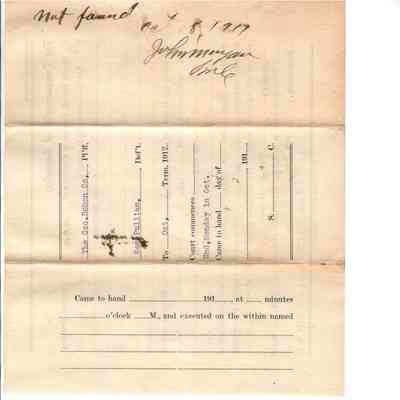 Not found Oct 8, 1917
John Morgan
The Geo. Bohon Co, Pl'ff.
Def't.
To Oct, Term, 1912.
Court commences
2nd, Monday in Oct,
Came to hand day of
191
S. C.
Came to hand 191 , at minutes
o'clock M., and executed on the within named